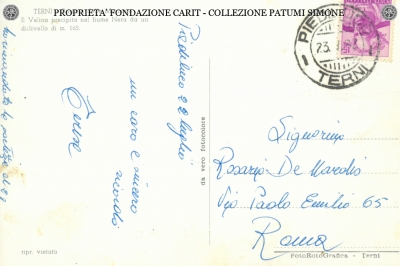 PROPRIETA' FONDAZIONE CARIT - COLLEZIONE PATUMI SIMONE
TERNI
Il Velino precipita sul fiume Nera da un
dislivello di m. 165
Piediluco 22 luglio
un caro e sincero
ricordo
ricambiata la
da vero fotocolore
PIEDILUCO
23
TERNI
Signorina
Rosaria De
Via Paolo Emilio 65
Roma
ripr. vietata
FotoRotoGrafica - Terni